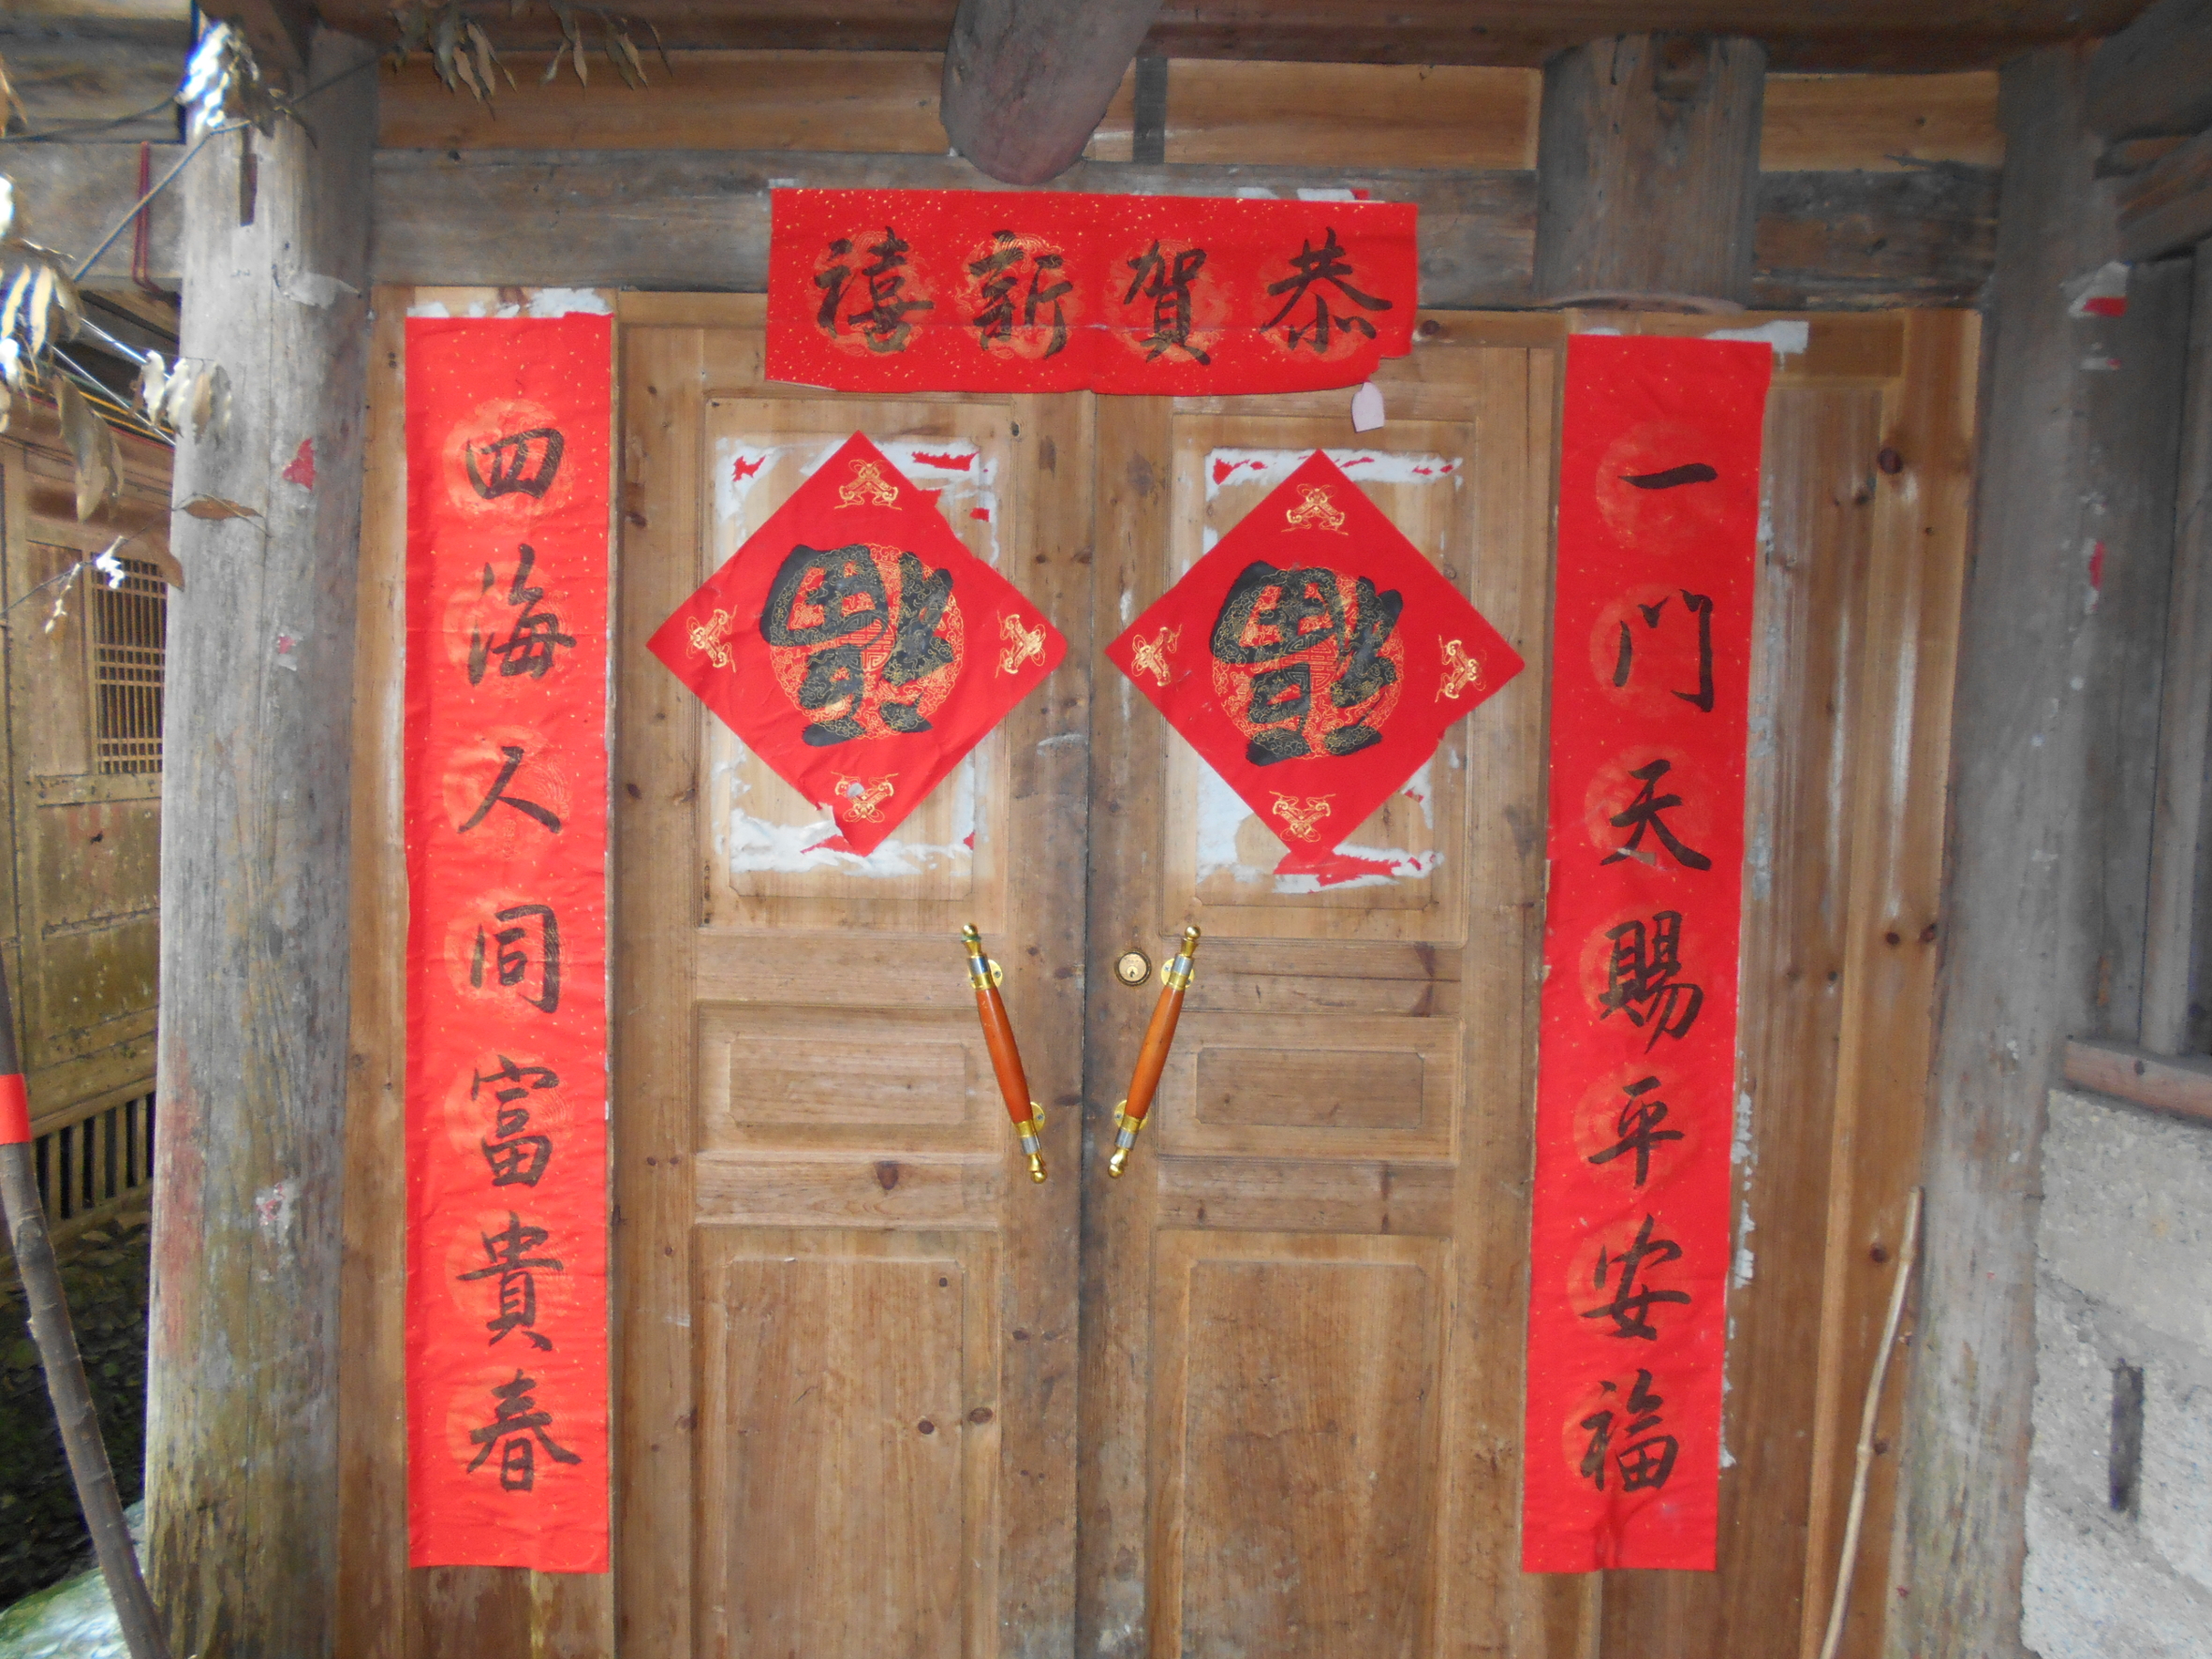 恭賀新禧
一门天賜平安福
四海人同富貴春
福
福